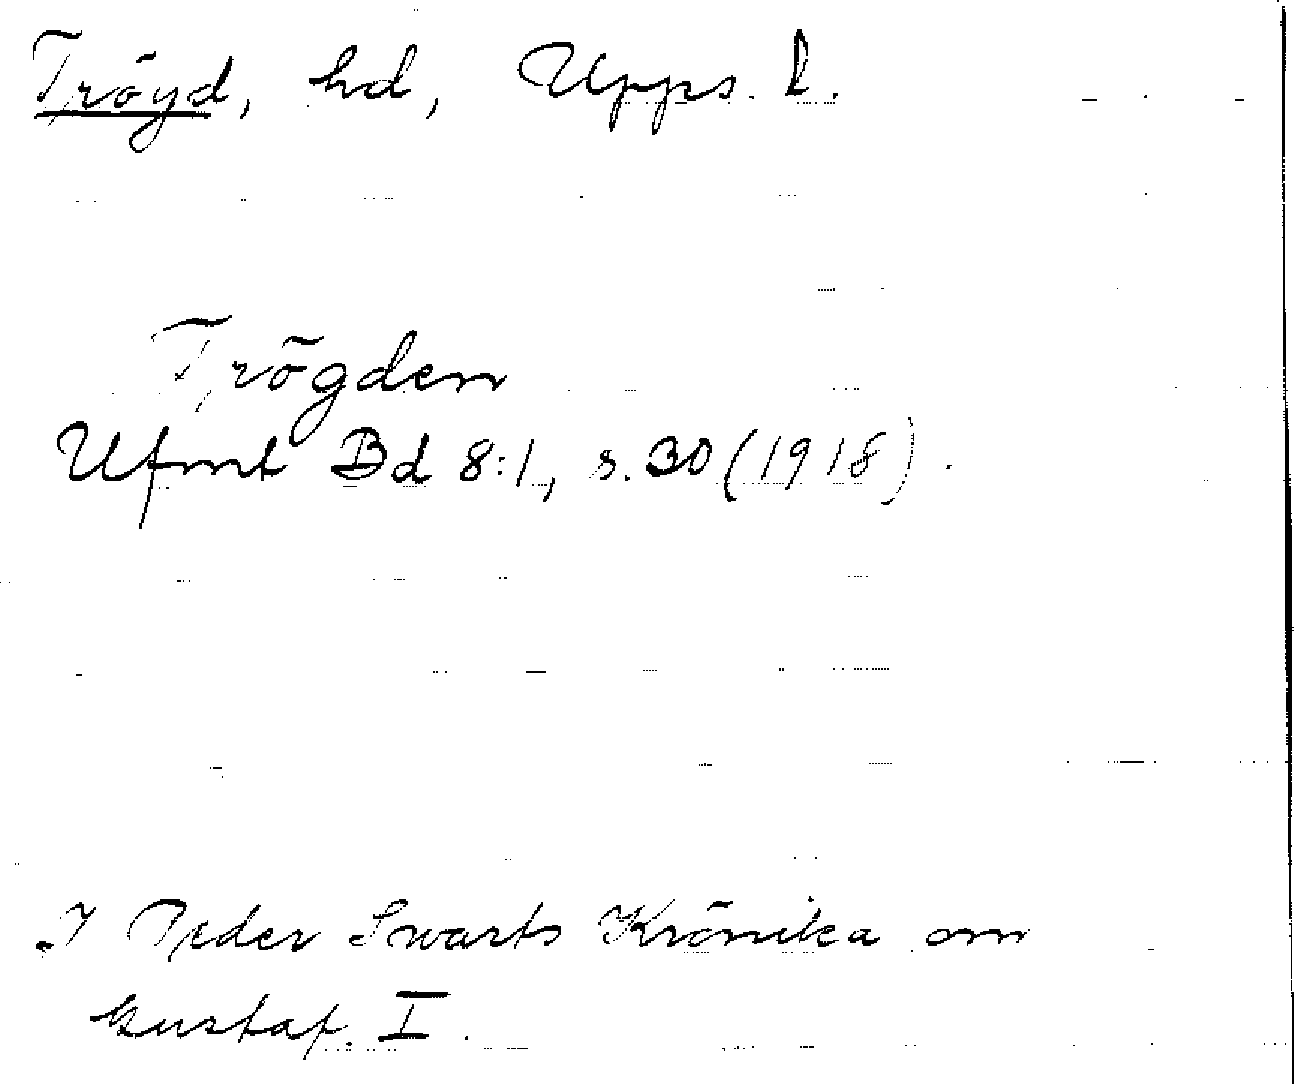 Tröyd, hd, Upps. l.
Trögden
Ufmt Bd 8:1, s. 30 (1918).
I Peder Swarts Krönika om
Gustaf. I.